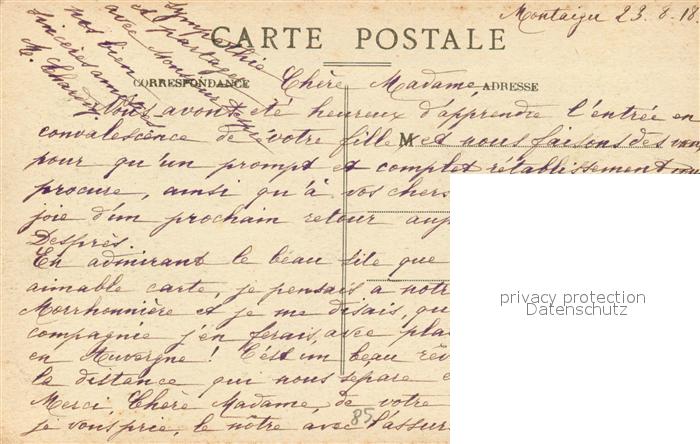 Montaigu 23-8-18
CARTE POSTALE
CORRESPONDANCE
ADRESSE
M
Chère Madame
Nous avons été heureux d'apprendre l'entrée en
convalescence de votre fille et nous faisons des vœux
pour qu'un prompt et complet rétablissement vous
procure, ainsi qu'à vos chers
joie d'un prochain retour
Desprès.
En admirant le beau site que
aimable carte, je pensais à notre
Morrhonnière et je me disais,
compagnie j'en ferais, avec
en Auvergne ! C'est un beau
la distance qui nous sépare
Merci, Chère Madame, de votre
je vous prie, le nôtre avec
sympathie
à partager
avec Monsieur
nos bien
sincères
85
privacy protection
Datenschutz